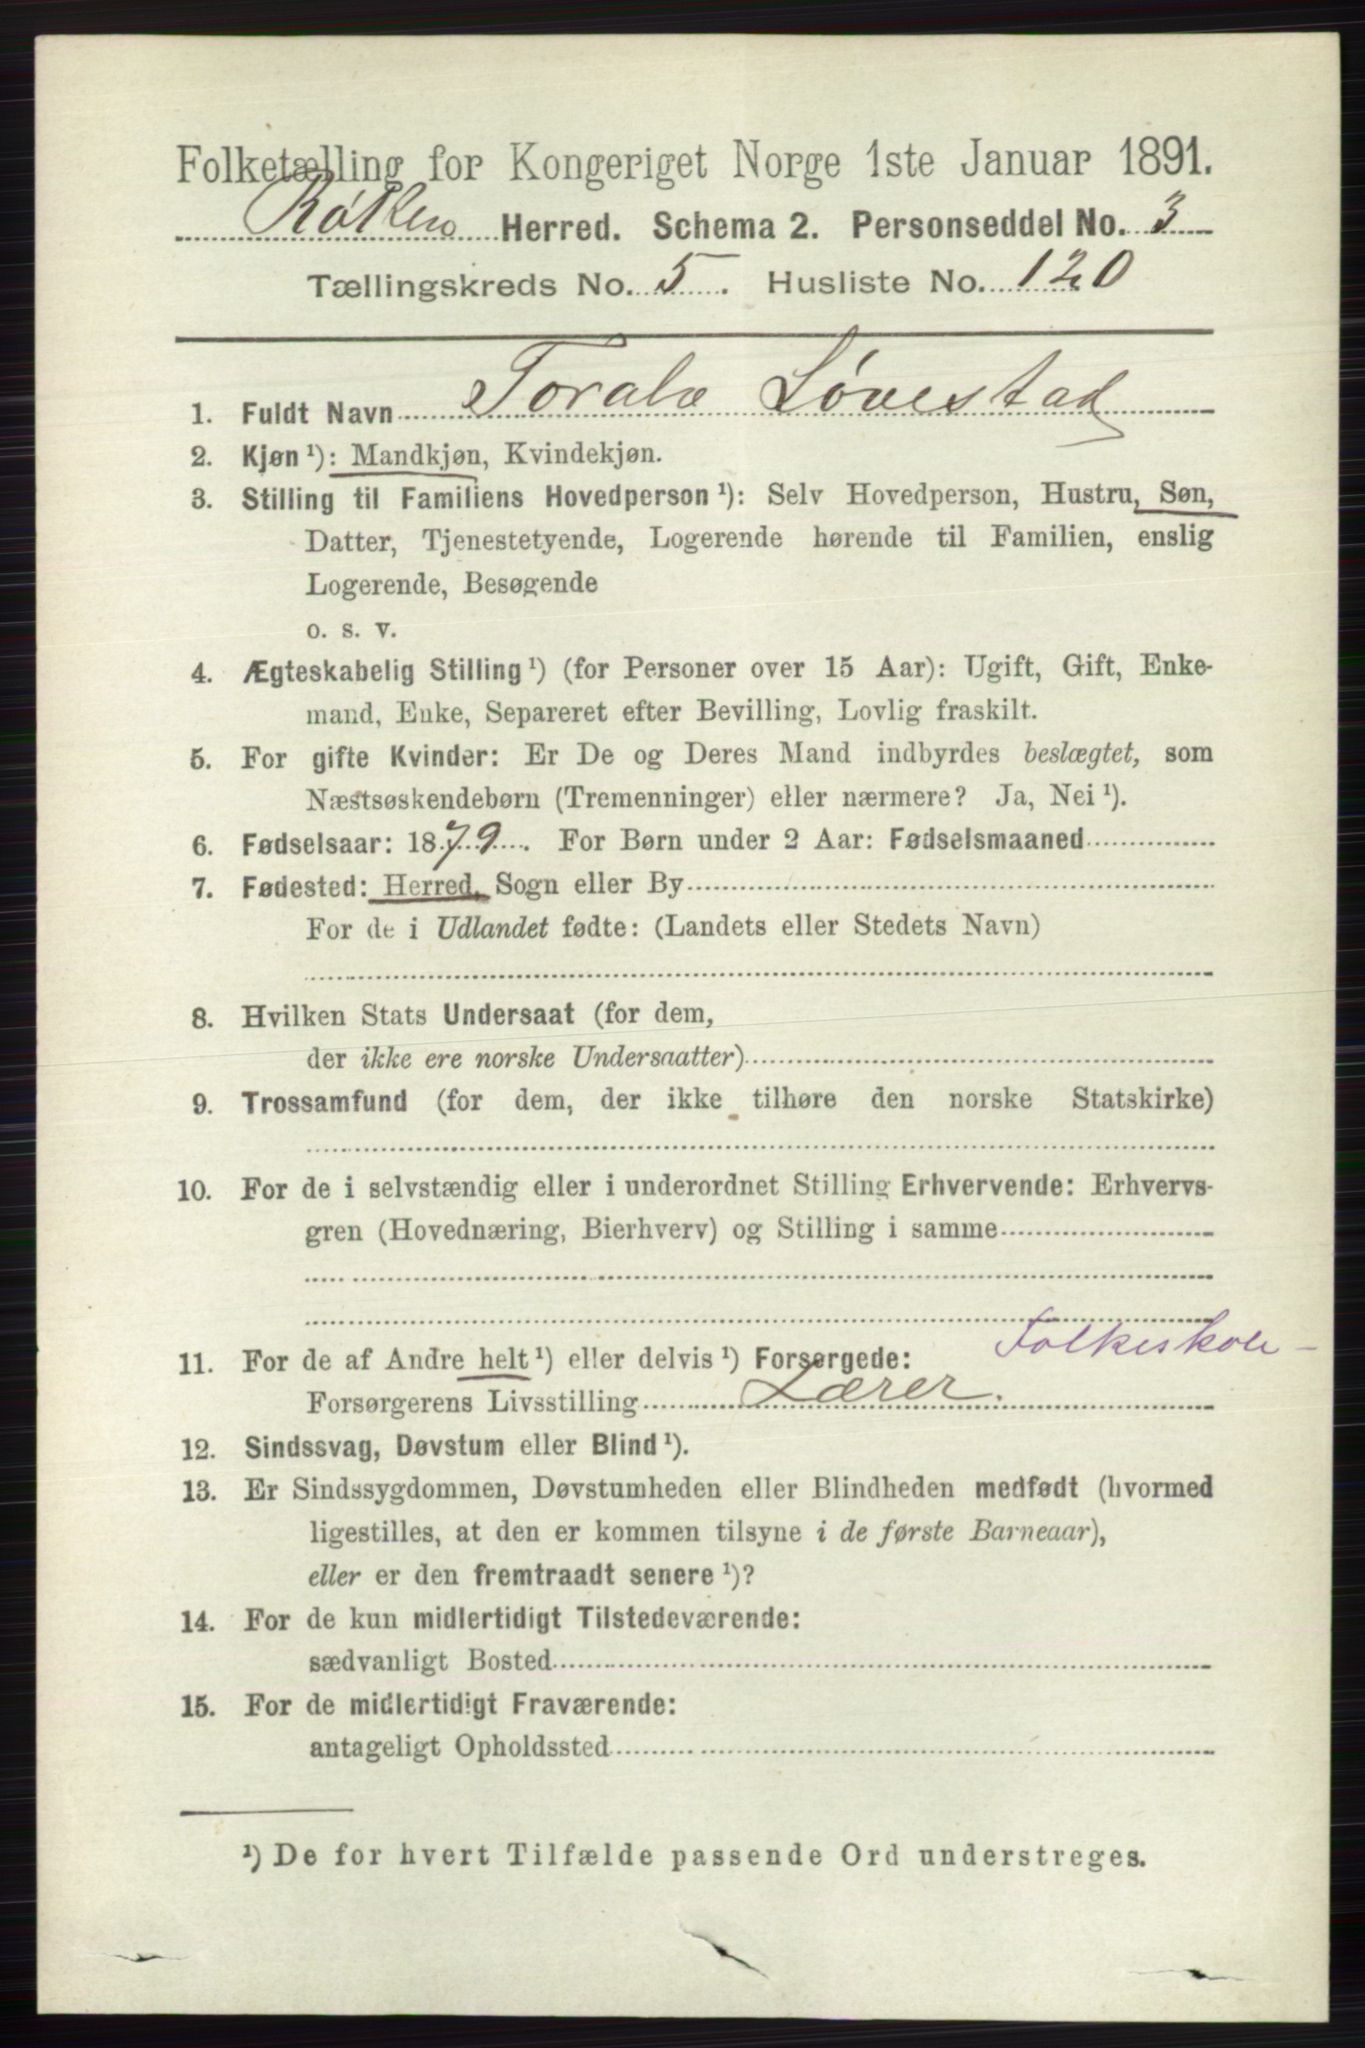 Folketælling for Kongeriget Norge 1ste Januar 1891.
Røken Herred. Schema 2. Personseddel No. 3
Tællingskreds No. 5. Husliste No. 120
1. Fuldt Navn Toralv Løvestad
2. Kjøn ¹): Mandkjøn, Kvindekjøn.
3. Stilling til Familiens Hovedperson ¹): Selv Hovedperson, Hustru, Søn,
Datter, Tjenestetyende, Logerende hørende til Familien, enslig
Logerende, Besøgende
o. s. v.
4. Ægteskabelig Stilling ¹) (for Personer over 15 Aar): Ugift, Gift, Enke-
mand, Enke, Separeret efter Bevilling, Lovlig fraskilt.
5. For gifte Kvinder: Er De og Deres Mand indbyrdes beslægtet, som
Næstsøskendebørn (Tremenninger) eller nærmere? Ja, Nei ¹).
6. Fødselsaar: 1879. For Børn under 2 Aar: Fødselsmaaned
7. Fødested: Herred, Sogn eller By
For de i Udlandet fødte: (Landets eller Stedets Navn)
8. Hvilken Stats Undersaat (for dem,
der ikke ere norske Undersaatter)
9. Trossamfund (for dem, der ikke tilhøre den norske Statskirke)
10. For de i selvstændig eller i underordnet Stilling Erhvervende: Erhvervs-
gren (Hovednæring, Bierhverv) og Stilling i samme
Folkeskole-
11. For de af Andre helt ¹) eller delvis ¹) Forsørgede:
Forsørgerens Livsstilling Lærer.
12. Sindssvag, Døvstum eller Blind ¹).
13. Er Sindssygdommen, Døvstumheden eller Blindheden medfødt (hvormed
ligestilles, at den er kommen tilsyne i de første Barneaar),
eller er den fremtraadt senere ¹)?
14. For de kun midlertidigt Tilstedeværende:
sædvanligt Bosted
15. For de midlertidigt Fraværende:
antageligt Opholdssted
¹) De for hvert Tilfælde passende Ord understreges.